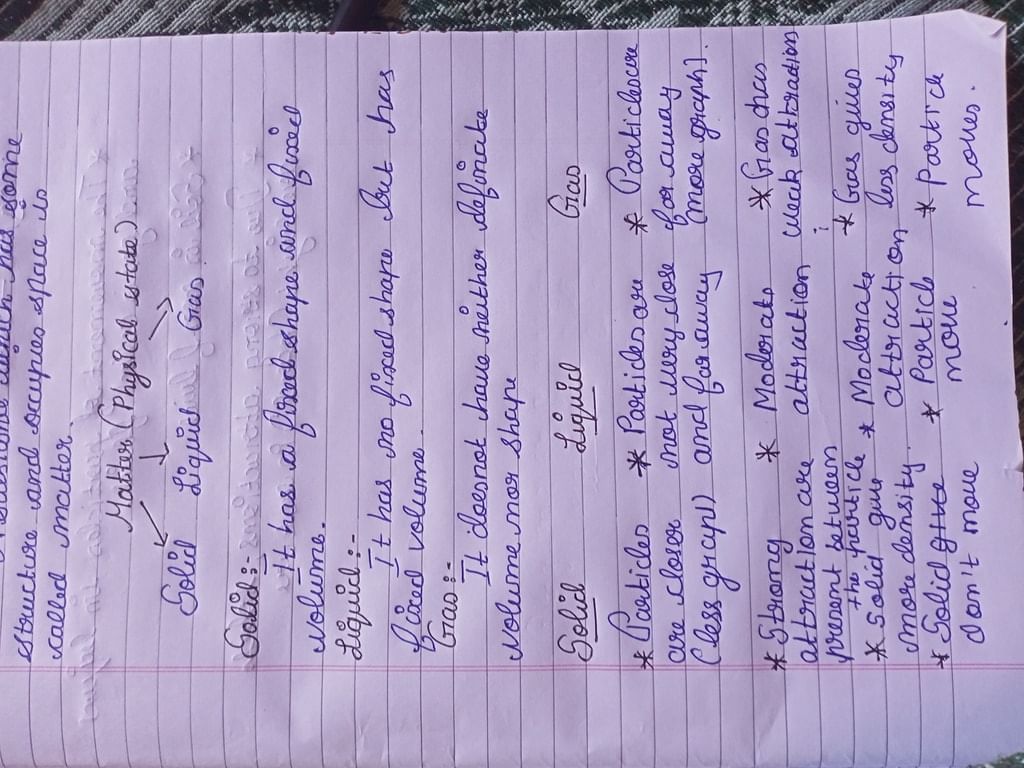 structure and occupies space is
called matter
Matter (Physical state)
Solid Liquid Gas
Solid:-
It has a fixed shape and fixed
volume.
Liquid:-
It has no fixed shape but has
fixed volume.
Gas:-
It doesnot have neither definate
volume nor shape
Solid Liquid Gas
* Particles * Particles are * Particlesare
are closer not very close far away
(less grap) and far away (more graph).
* Strong * Moderats * Gas has
attraction are attraction weak attradion
present between
the particle * Moderate * Gas gives
* Solid give attraction less density
more density.
* Solid * Particle * Particle
don't move move moves.